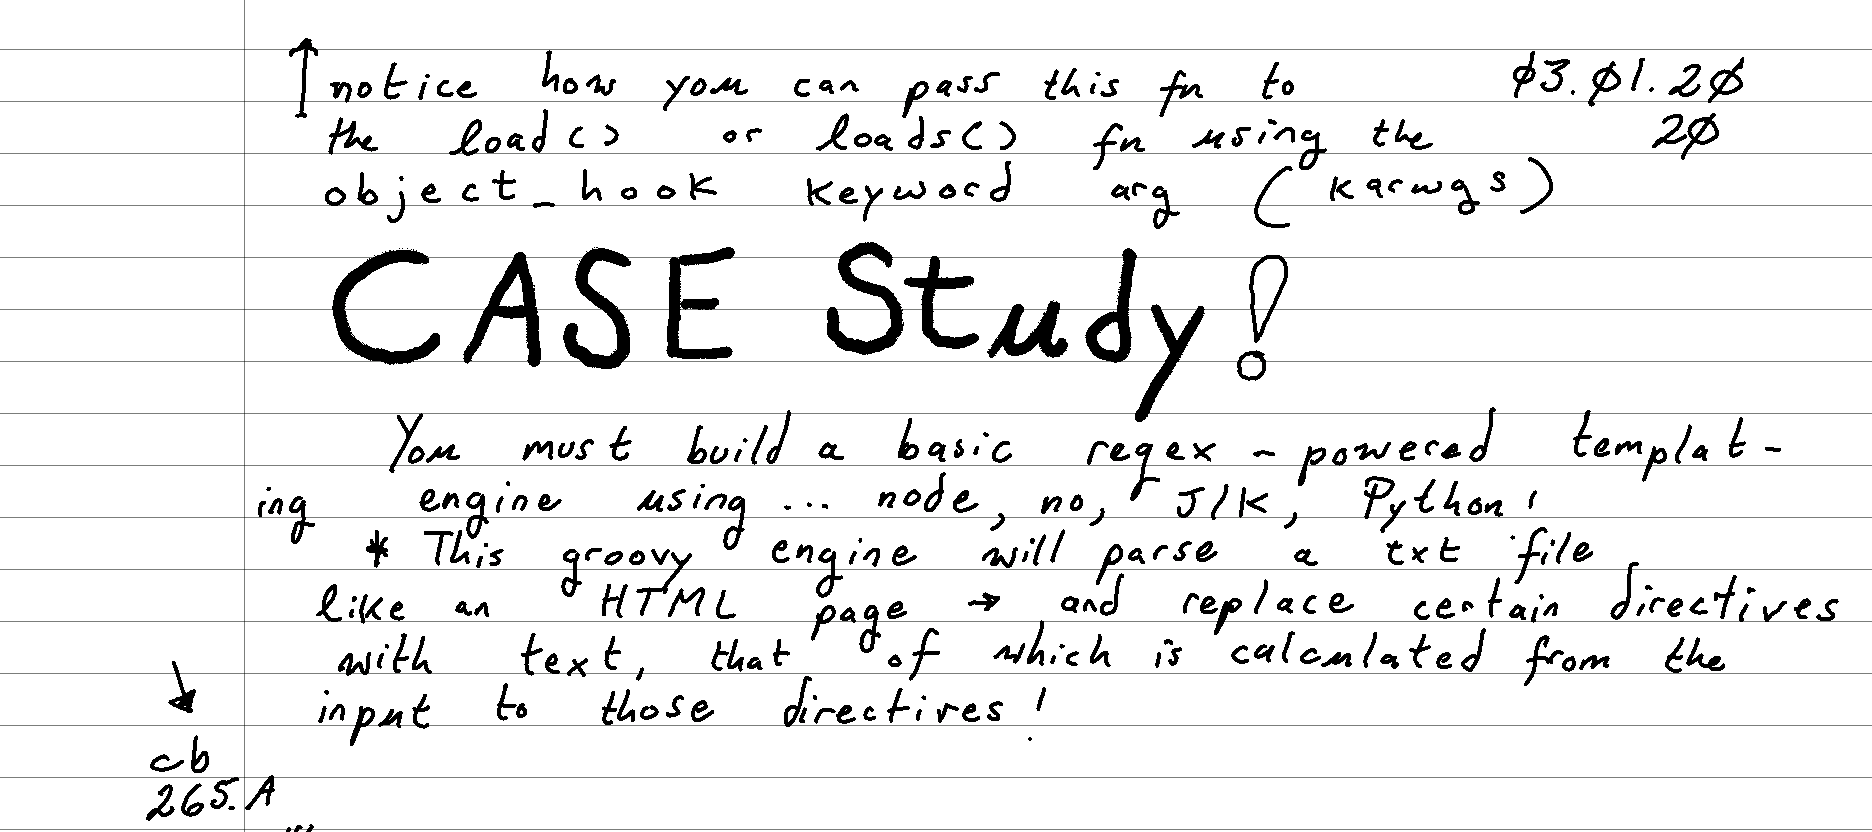 ↑ notice how you can pass this fn to ø3.ø1.2ø
the load() or loads() fn using the 2ø
object_hook keyword arg (karwgs)
CASE Study!
You must build a basic regex-powered templat-
ing engine using... node, no, J/K, Python!
* This groovy engine will parse a txt file
like an HTML page → and replace certain directives
with text, that of which is calculated from the
input to those directives!
cb
265.A